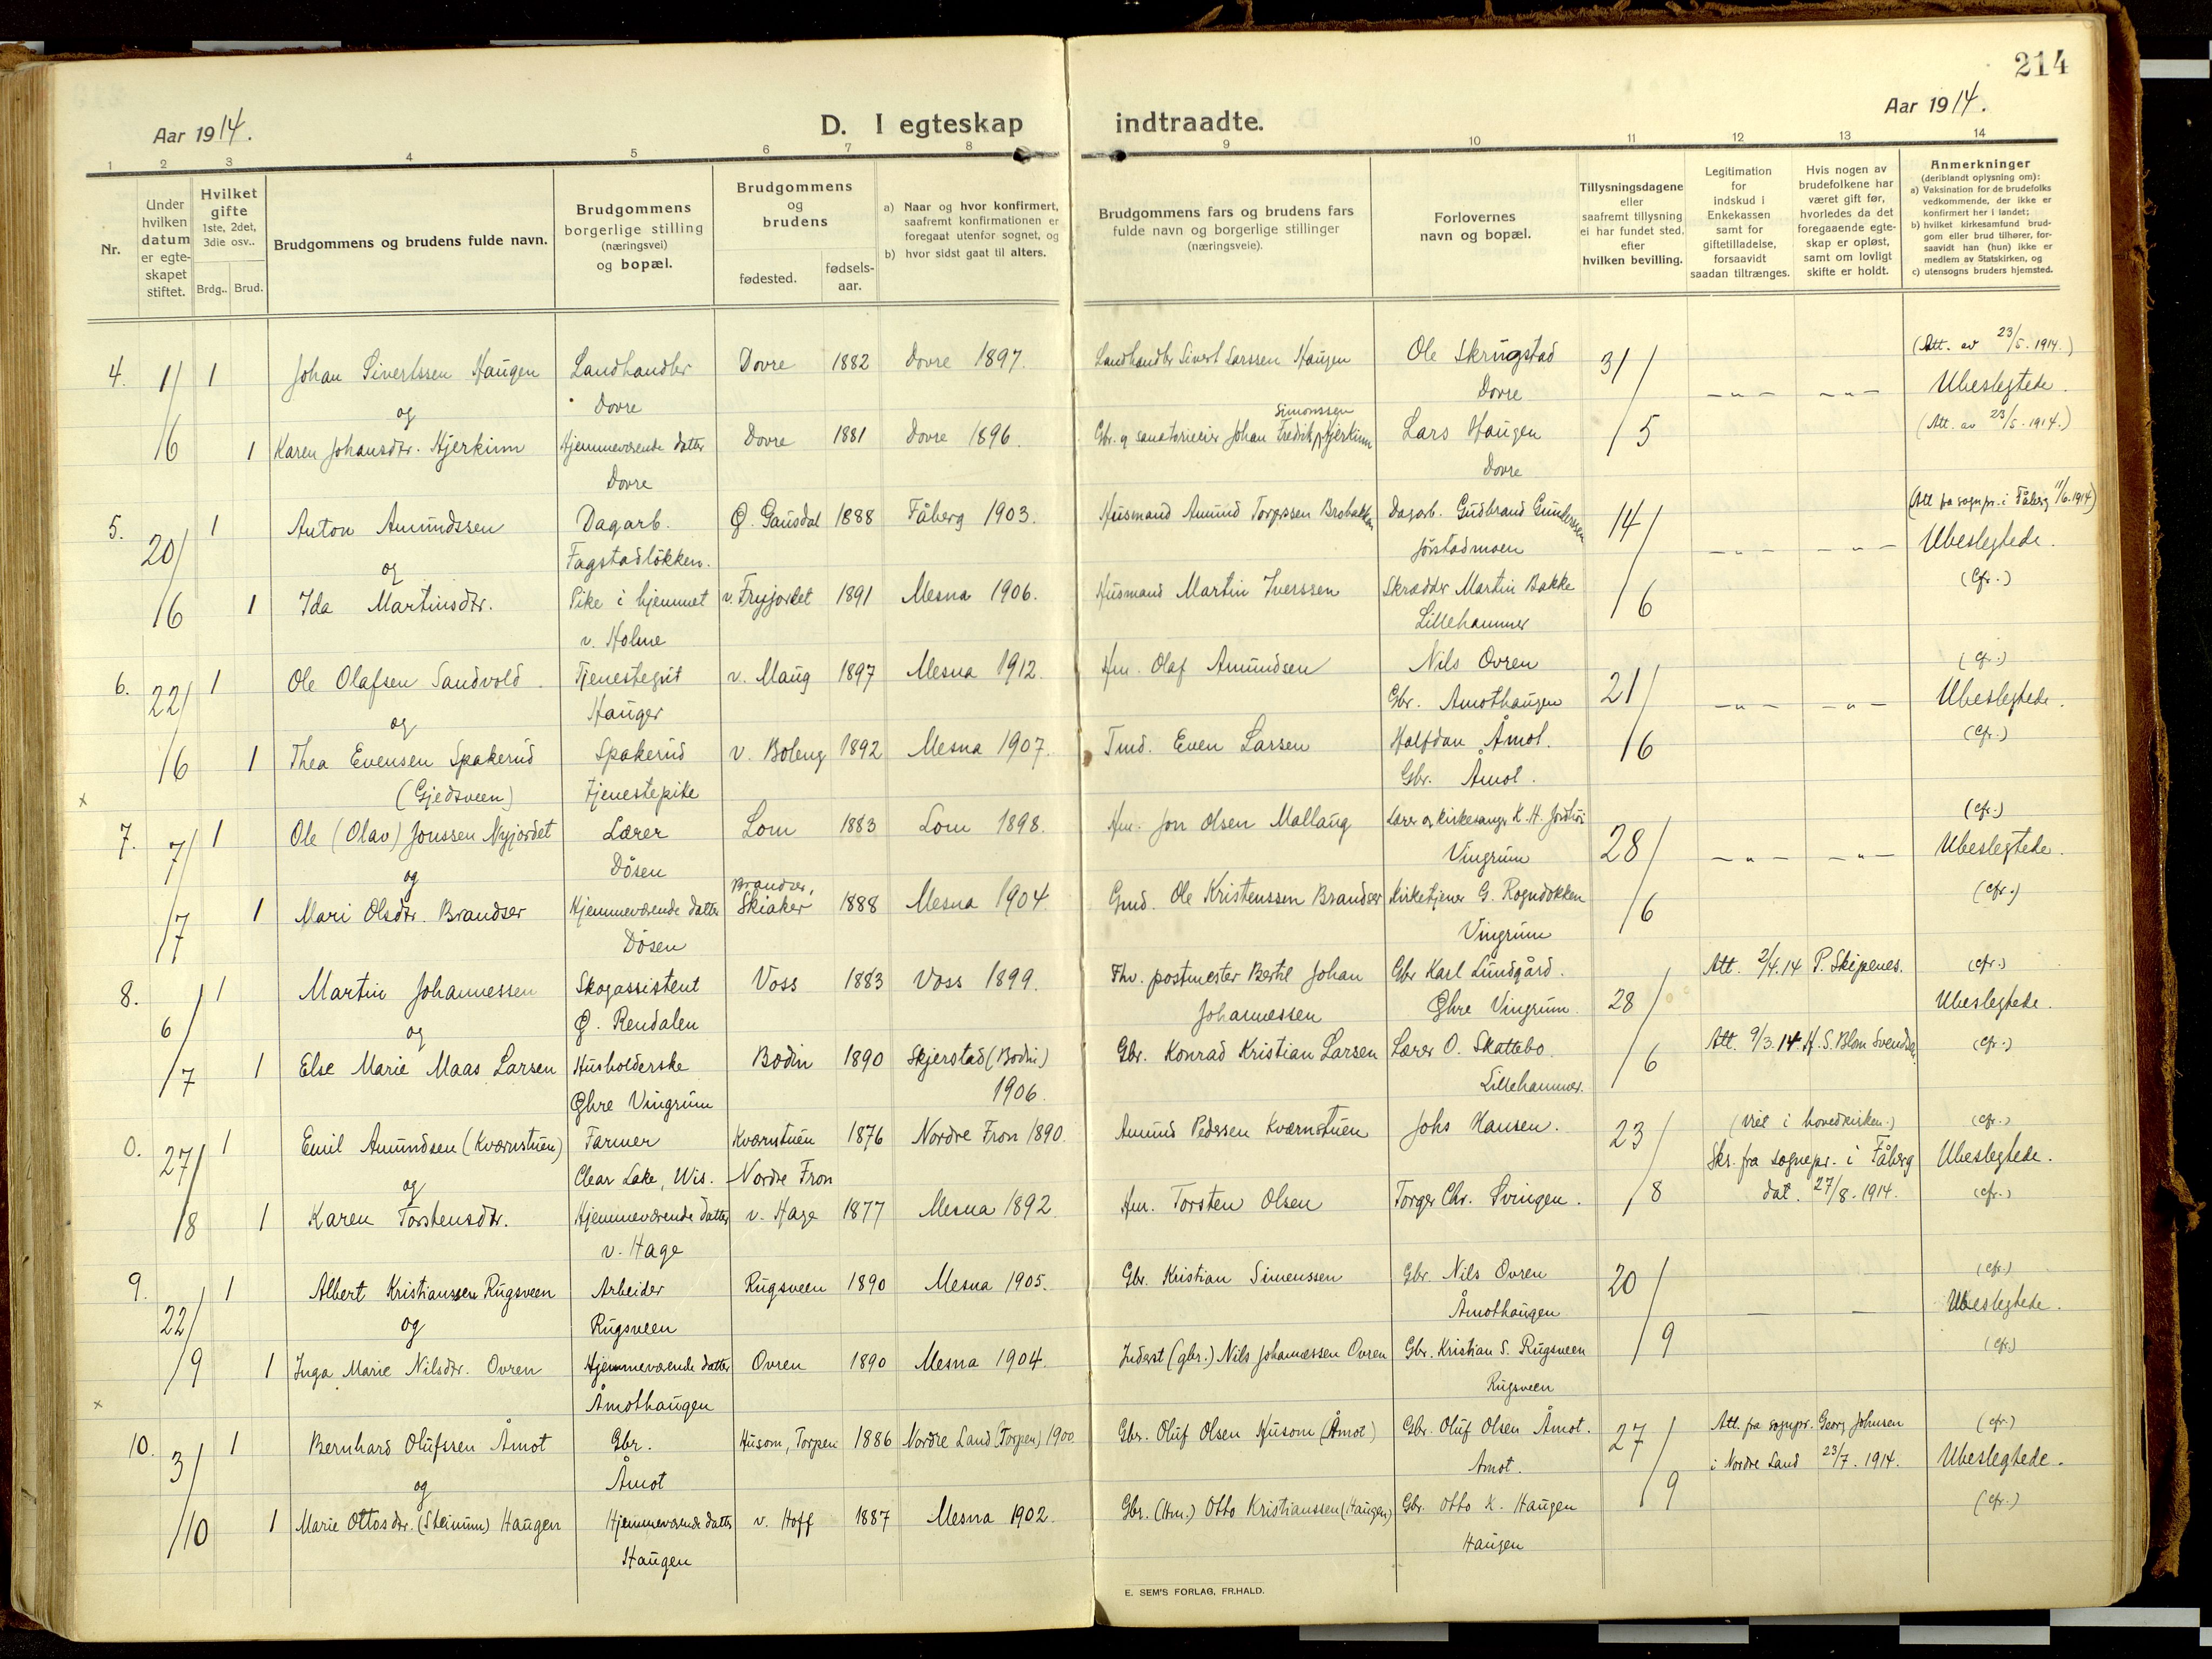 214
Aar 1914.
D. I egteskap indtraadte.
Aar 1914.
1 2 3 4 5 6 7 8 9 10 11 12 13 14
Nr.
Under hvilken datum er egteskapet stiftet.
Hvilket gifte 1ste, 2det, 3die osv..
Brdg.. Brud.
Brudgommens og brudens fulde navn.
Brudgommens borgerlige stilling (næringsvei) og bopæl.
Brudgommens og brudens
fødested. fødselsaar.
a) Naar og hvor konfirmert, saafremt konfirmationen er foregaat utenfor sognet, og
b) hvor sidst gaat til alters.
Brudgommens fars og brudens fars fulde navn og borgerlige stillinger (næringsveie).
Forlovernes navn og bopæl.
Tillysningsdagene eller saafremt tillysning ei har fundet sted, efter hvilken bevilling.
Legitimation for indskud i Enkekassen samt for giftetilladelse, forsaavidt saadan tiltrænges.
Hvis nogen av brudefolkene har været gift før, hvorledes da det foregaaende egteskap er opløst, samt om lovligt skifte er holdt.
Anmerkninger
(deriblandt oplysning om):
a) Vaksination for de brudefolks vedkommende, der ikke er konfirmert her i landet;
b) hvilket kirkesamfund brudgom eller brud tilhører, forsaavidt han (hun) ikke er medlem av Statskirken, og
c) utensogns bruders hjemsted.
4. 1/ 1 Johan Sivertssen Haugen Landhandler Dovre 1882 Dovre 1897. Landhandlr Sivert Larssen Haugen Ole Skrugstad 31/ (Att. av 23/5. 1914.)
og Dovre Dovre –„– –„– Ubeslegtede.
/6 1 Karen Johansdtr. Hjerkinn Hjemmeværende datter Dovre 1881 Dovre 1896. Gbr. og sanatorieeier Johan Fredrik Simonssen Hjerkinn Lars Haugen /5 (Att. av 23/5. 1914.)
Dovre Dovre
5. 20/ 1 Anton Amundssen Dagarb. Ø. Gausdal 1888 Fåberg 1903. Husmand Amund Torgerssen Brobakken Dagarb. Gudbrand Gunderssen 14/ (Att fra sognepr. i Fåberg 11/6.1914)
og Fagstadløkken. Jørstadmoen –„– –„– Ubeslegtede.
/6 1 Ida Martinsdtr. Pike i hjemmet v. Fryjordet 1891 Mesna 1906. Husmand Martin Iverssen Skrædder Martin Bakke /6 (Cfr.)
v. Holme Lillehammer
6. 22/ 1 Ole Olafsen Sandvold Tjenestegut v. Maug 1897 Mesna 1912. Hm. Olaf Amundsen Nils Ovren 21/ (Cfr.)
og Hauger Gbr. Amothaugen –„– –„– Ubeslegtede.
/6 1 Thea Evensen Spakerud Spakerud v. Boleng 1892 Mesna 1907. Tmd. Even Larsen Halfdan Åmot. /6 (Cfr.)
(Gjedsveen) Tjenestepike Gbr. Åmot.
x
7. 7/ 1 Ole (Olav) Jonssen Nyjordet Lærer Lom 1883 Lom 1898. Hm. Jon Olsen Mallaug Lærer og kirkesangr K. H. 28/ (cfr.)
og Døsen Vingrum –„– –„– Ubeslegtede.
/7 1 Mari Olsdtr. Brandser Hjemmeværende datter Brandser, Skiaker 1888 Mesna 1904 Gmd. Ole Kristenssen Brandser Kirketjener G. Rognløkken /6 (cfr.)
Døsen Vingrum
8. 6/ 1 Martin Johannessen Skogassistent Voss 1883 Voss 1899. Fhv. postmester Bertil Johan Gbr Karl Lundgård. 28/ Att. 2/4.14 P. Skipenes. (cfr.)
og Ø. Rendalen Johannessen Øhre Vingrum. Ubeslegtede.
/7 1 Else Marie Maas Larsen Husholderske Bodin 1890 Skjerstad (Bodin) Gbr. Konrad Kristian Larsen Lærer O. Skattebo. /6 Att. 9/3.14 K. S. Blom Svendsen (cfr.)
Øhre Vingrum 1906. Lillehammer.
0. 27/ 1 Emil Amundsen (Kværnstuen) Farmer Kværnstuen 1876 Nordre Fron 1890. Amund Pedersen Kværnstuen Johs Hansen. 23/ (viet i hovedkirken.) (cfr.)
og Clear Lake, Wis. Nordre Fron Skr. fra sognepr. i Fåberg Ubeslegtede.
/8 1 Karen Torstensdtr. Hjemmeværende datter v. Hage 1877 Mesna 1892 Hm. Torsten Olsen Torger Chr. Svingen. /8 dat. 27/8. 1914. (cfr.)
v. Hage
9. 22/ 1 Albert Kristianssen Rugsveen Arbeider Rugsveen 1890 Mesna 1905. Gbr. Kristian Simenssen Gbr. Nils Ovren 20/ (cfr.)
og Rugsveen Åmothaugen – – Ubeslegtede.
/9 1 Inga Marie Nilsdtr. Ovren Hjemmeværende datter Ovren 1890 Mesna 1904. Inderst (gbr.) Nils Johannessen Ovren Gbr. Kristian S. Rugsveen /9 (cfr.)
x Åmothaugen Rugsveen
10. 3/ 1 Bernhard Olufssen Åmot Gbr. Husom, Torpen 1886 Nordre Land (Torpen) 1900 Gbr. Oluf Olsen Husom (Åmot) Gbr. Oluf Olsen Åmot. 27/ Att. fra sognepr. Georg Johnsen (cfr.)
og Åmot Amot. i Nordre Land 23/7. 1914. Ubeslegtede.
/10 1 Marie Ottosdtr. (Steinum) Haugen Hjemmeværende datter v. Hoff 1887 Mesna 1902. Gbr. (Hm.) Otto Kristianssen (Haugen) Gbr. Otto K. Haugen /9 (cfr.)
Haugen Haugen
E. SEM'S FORLAG, FR.HALD.